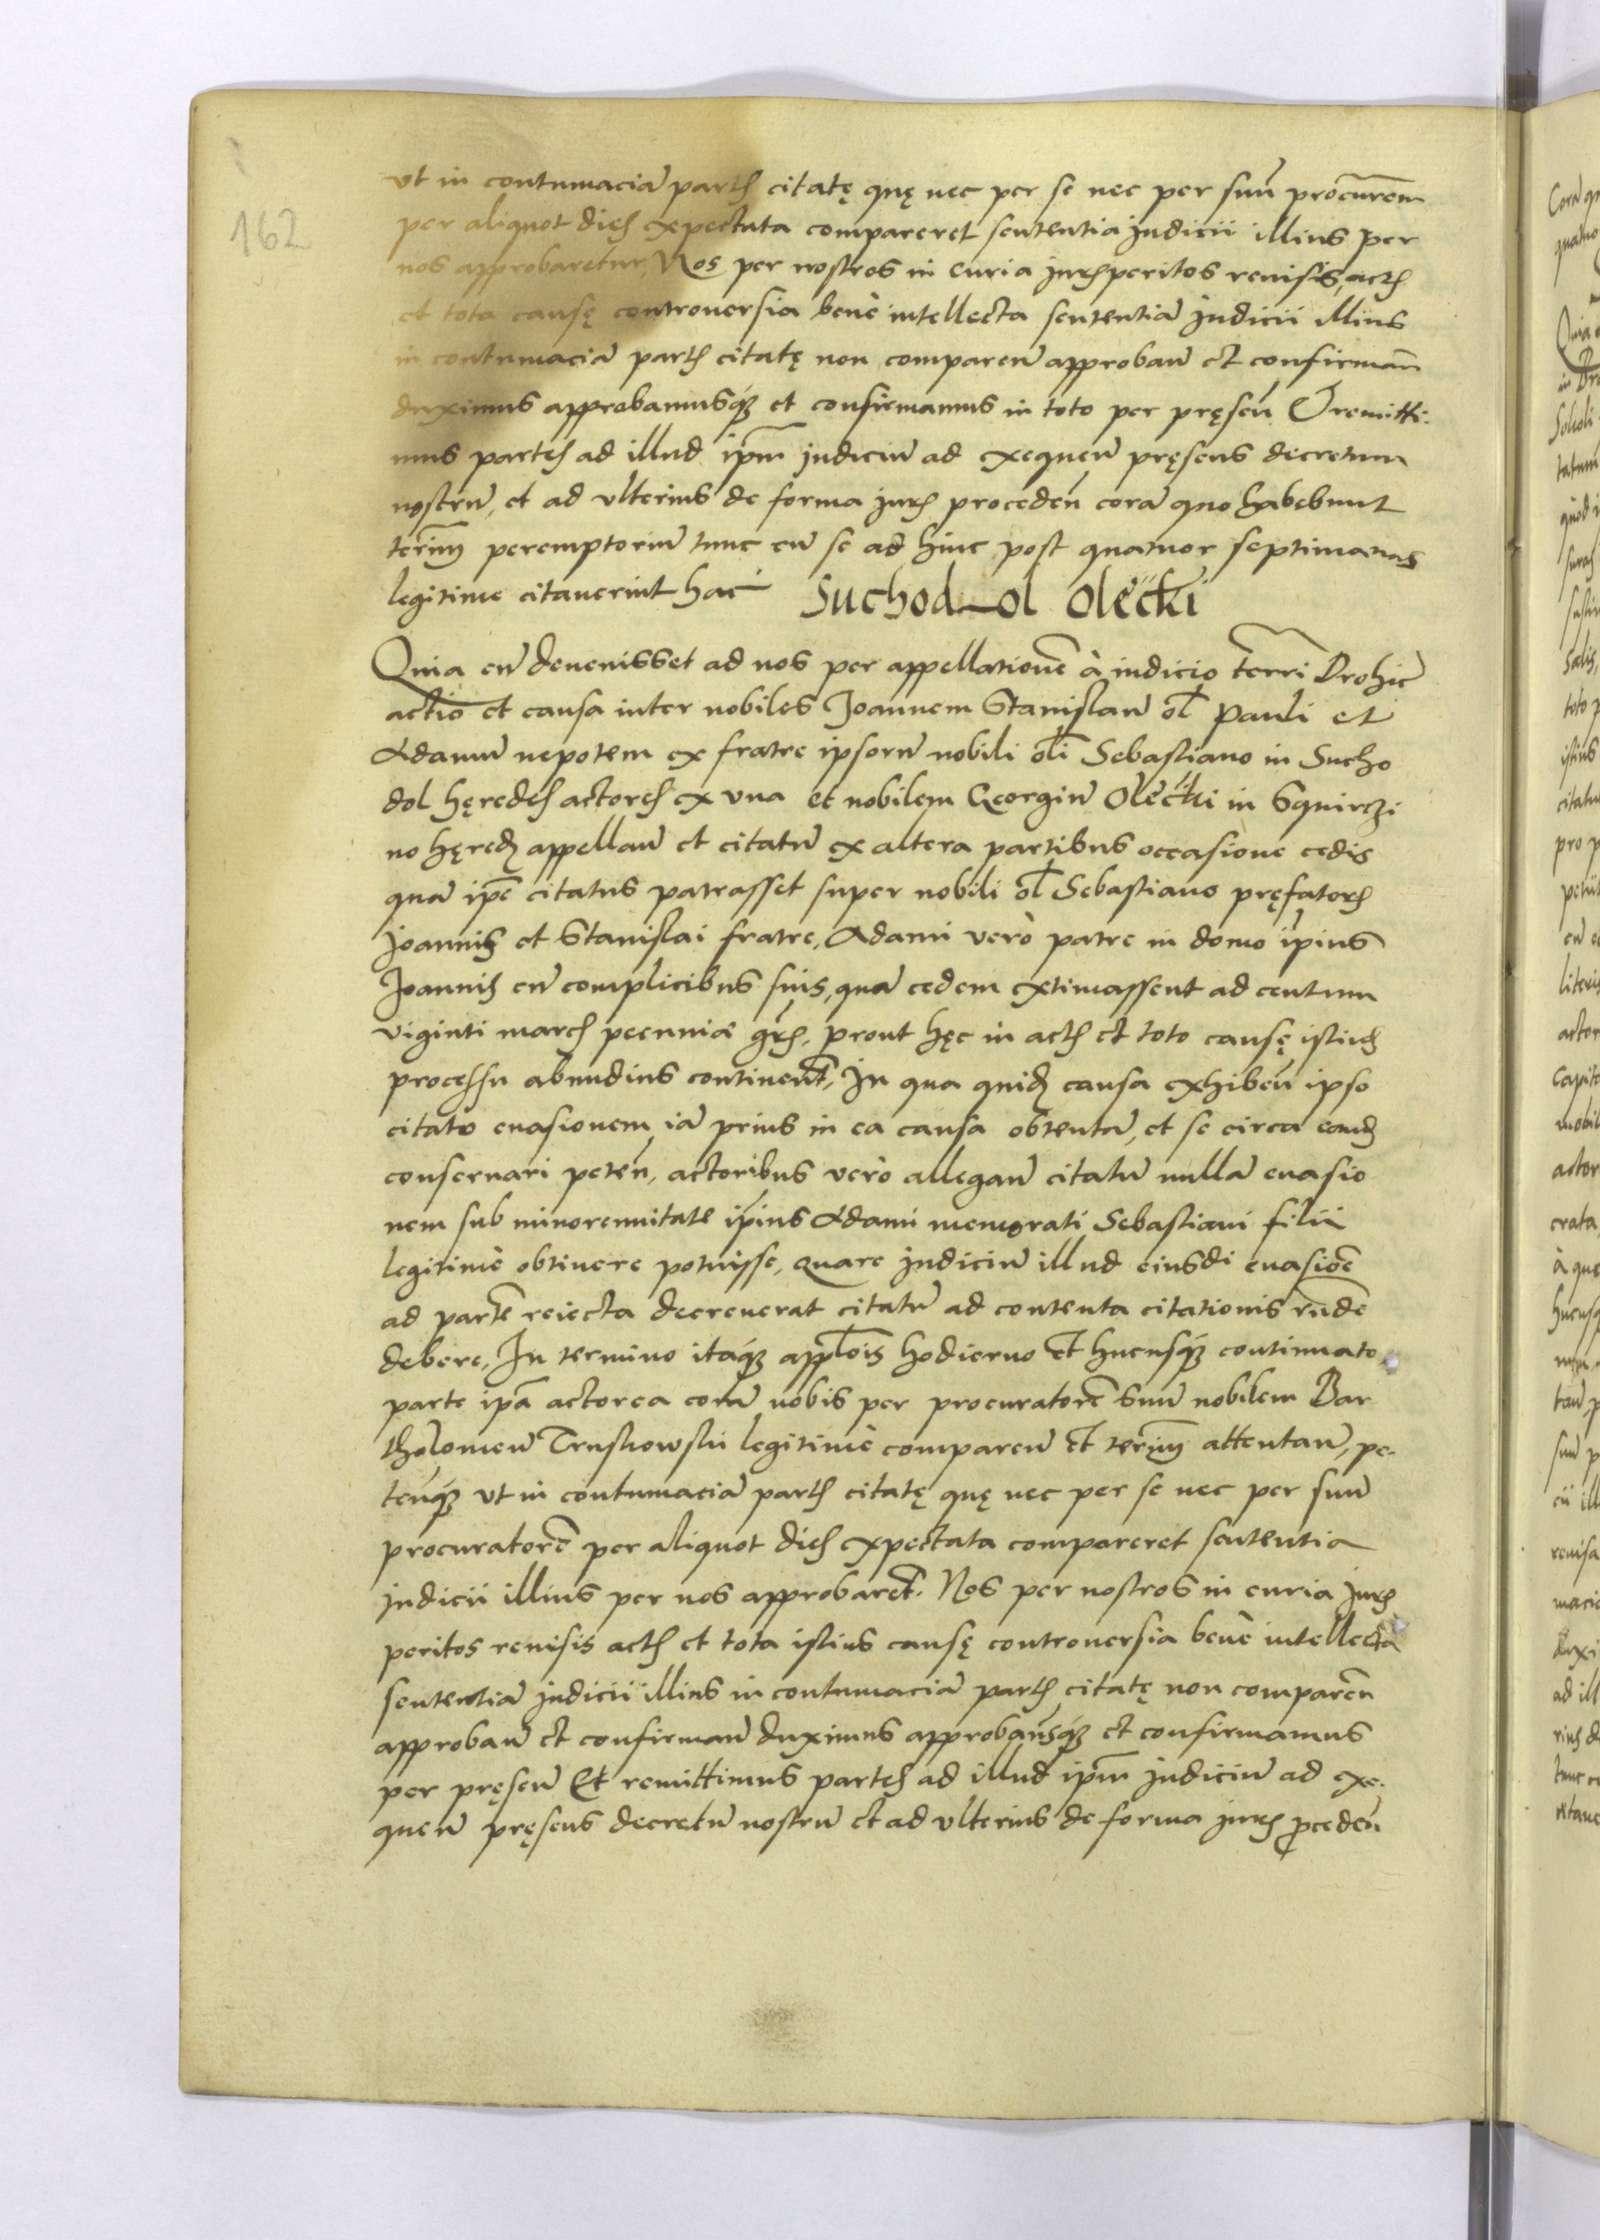 162
ut in contumaciā partis citatę quę nec per se nec per suū procurem̄
per aliquot dies expectata compareret sententia judicii illius per
nos approbaretur, Nos per nostros in curia jurisperitos revisis actis
et tota causę controversia benè intellecta sententiā judicii illius
in contumaciā partis citatę non compareñ approbañ et confirmañ
duximus approbamusq́ et confirmamus in toto per pręseñ Et remitti-
mus partes ad illud ip̄m judiciū ad exequeñ pręsens decretum
nostrū, et ad ulterius de forma juris procedeñ corā quo habebunt
term̄ peremptoriū tunc cū se ad hinc post quatuor septimanas
legitime citaverint hac Suchod-ol Olecki
Quia cū devenisset ad nos per appellationē à judicio terrī Drohic̄
actio et causa inter nobiles Joannem Stanislaū ol̄ Pauli et
Adamū nepotem ex fratre ipsorū nobili oli Sebastiano in Sucho
dol hęredes actores ex una et nobilem Georgiū Olecki in Squirczi
no hęred appellañ et citatū ex altera partibus occasione cedis
quā ip̄e citatus patrasset super nobili ol̄ Sebastiano pręfatoris
Joannis et Stanislai fratre, Adami verò patre in domo ip̄ius
Joannis cū complicibus suis, quā cedem extimassent ad centum
viginti marcis pecuniæ gr̄is, prout hęc in actis et toto causę istius
processu abundius continent̄, In qua quid causa exhibeñ ipso
citato evasionem iā prius in ea causa obtentā, et se circa eand
conservari peteñ, actoribus verò allegañ citatū nullā evasio
nem sub minorennitate ip̄ius Adami memorati Sebastiani filii
legitimè obtinere potuisse, quare judiciū illud eiusdi evasiōe
ad partē reiecta decreverat citatū ad contenta citationis rñdē
debere, In termino itaq́ appłois hodierno et hucusq́ continuato
parte ip̄a actorea corā nobis per procuratorē suū nobilem Bar
tholomeū Truskowski legitimè compareñ et term̄ attentañ, pe-
tenq́ ut in contumaciā partis citatę quę nec per se nec per suū
procuratorē per aliquot dies expectata compareret sententia
judicii illius per nos approbaret̄. Nos per nostros in curia juris
peritos revisis actis et tota istius causę controversia benè intellecta
sententiā judicii illius in contumaciā partis citatę non compareñ
approbañ et confirmañ duximus approbam̄sq́ et confirmamus
per pręseñ Et remittimus partes ad illud ip̄m judiciū ad exe-
queñ pręsens decretū nostrū et ad ulterius de forma juris p̄cedeñ